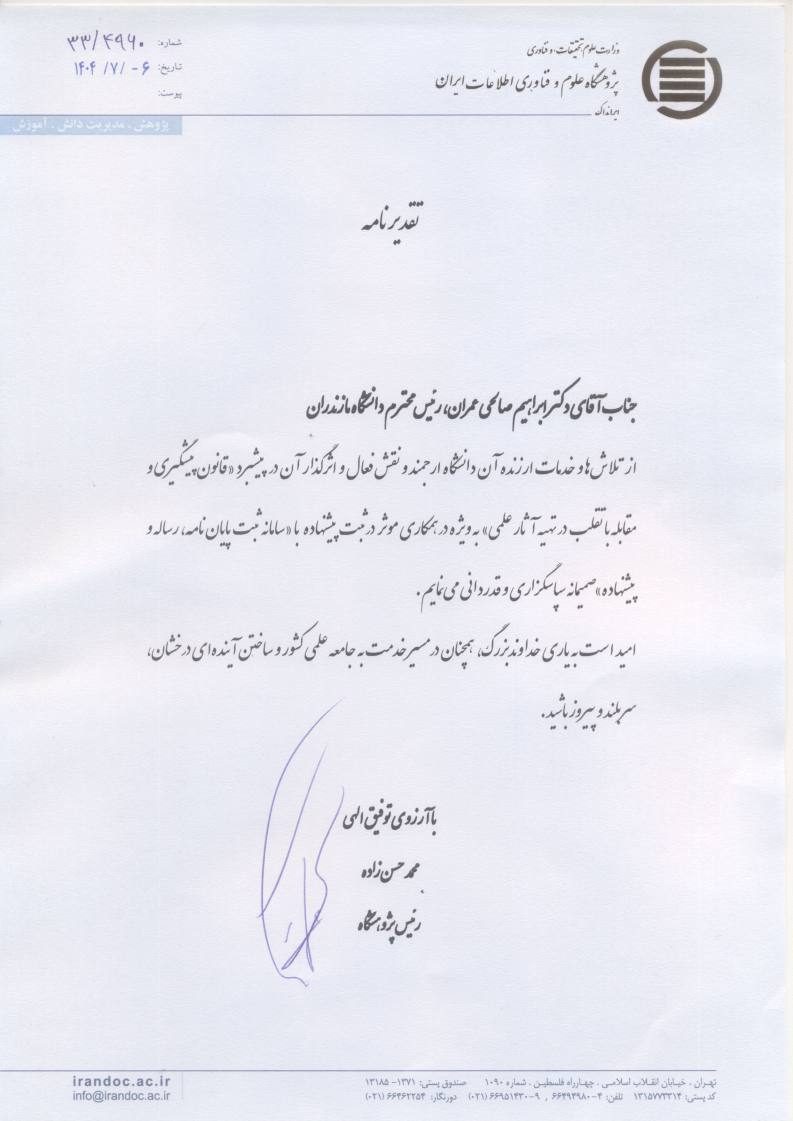 وزارت علوم، تحقیقات، و فناوری
پژوهشگاه علوم و فناوری اطلاعات ایران
ایرانداک
شماره: ۳۳/۴۹۶۰
تاریخ: ۱۴۰۴/۷/-۶
پیوست:
پژوهش . مدیریت دانش . آموزش
تقدیرنامه
جناب آقای دکتر ابراهیم صالحی عمران، رئیس محترم دانشگاه مازندران
از تلاش‌ها و خدمات ارزنده آن دانشگاه ارجمند و نقش فعال و اثرگذار آن در پیشبرد «قانون پیشگیری و
مقابله با تقلب در تهیه آثار علمی» به ویژه در همکاری موثر در ثبت پیشنهاده با «سامانه ثبت پایان نامه، رساله و
پیشنهاده» صمیمانه سپاسگزاری و قدردانی می‌نمایم.
امید است به یاری خداوند بزرگ، همچنان در مسیر خدمت به جامعه علمی کشور و ساختن آینده‌ای درخشان،
سربلند و پیروز باشید.
با آرزوی توفیق الهی
محمد حسن‌زاده
رئیس پژوهشگاه
تهـران . خیـابان انقـلاب اسلامـی . چهـارراه فلسطیـن . شماره ۱۰۹۰ صندوق پستی: ۱۳۷۱- ۱۳۱۸۵
کد پستی: ۱۳۱۵۷۷۳۳۱۴ تلفن: ۴-۶۶۴۹۴۹۸۰ , ۹-۶۶۹۵۱۴۳۰ (۰۲۱) دورنگار: ۶۶۴۶۲۲۵۴ (۰۲۱)
irandoc.ac.ir
info@irandoc.ac.ir